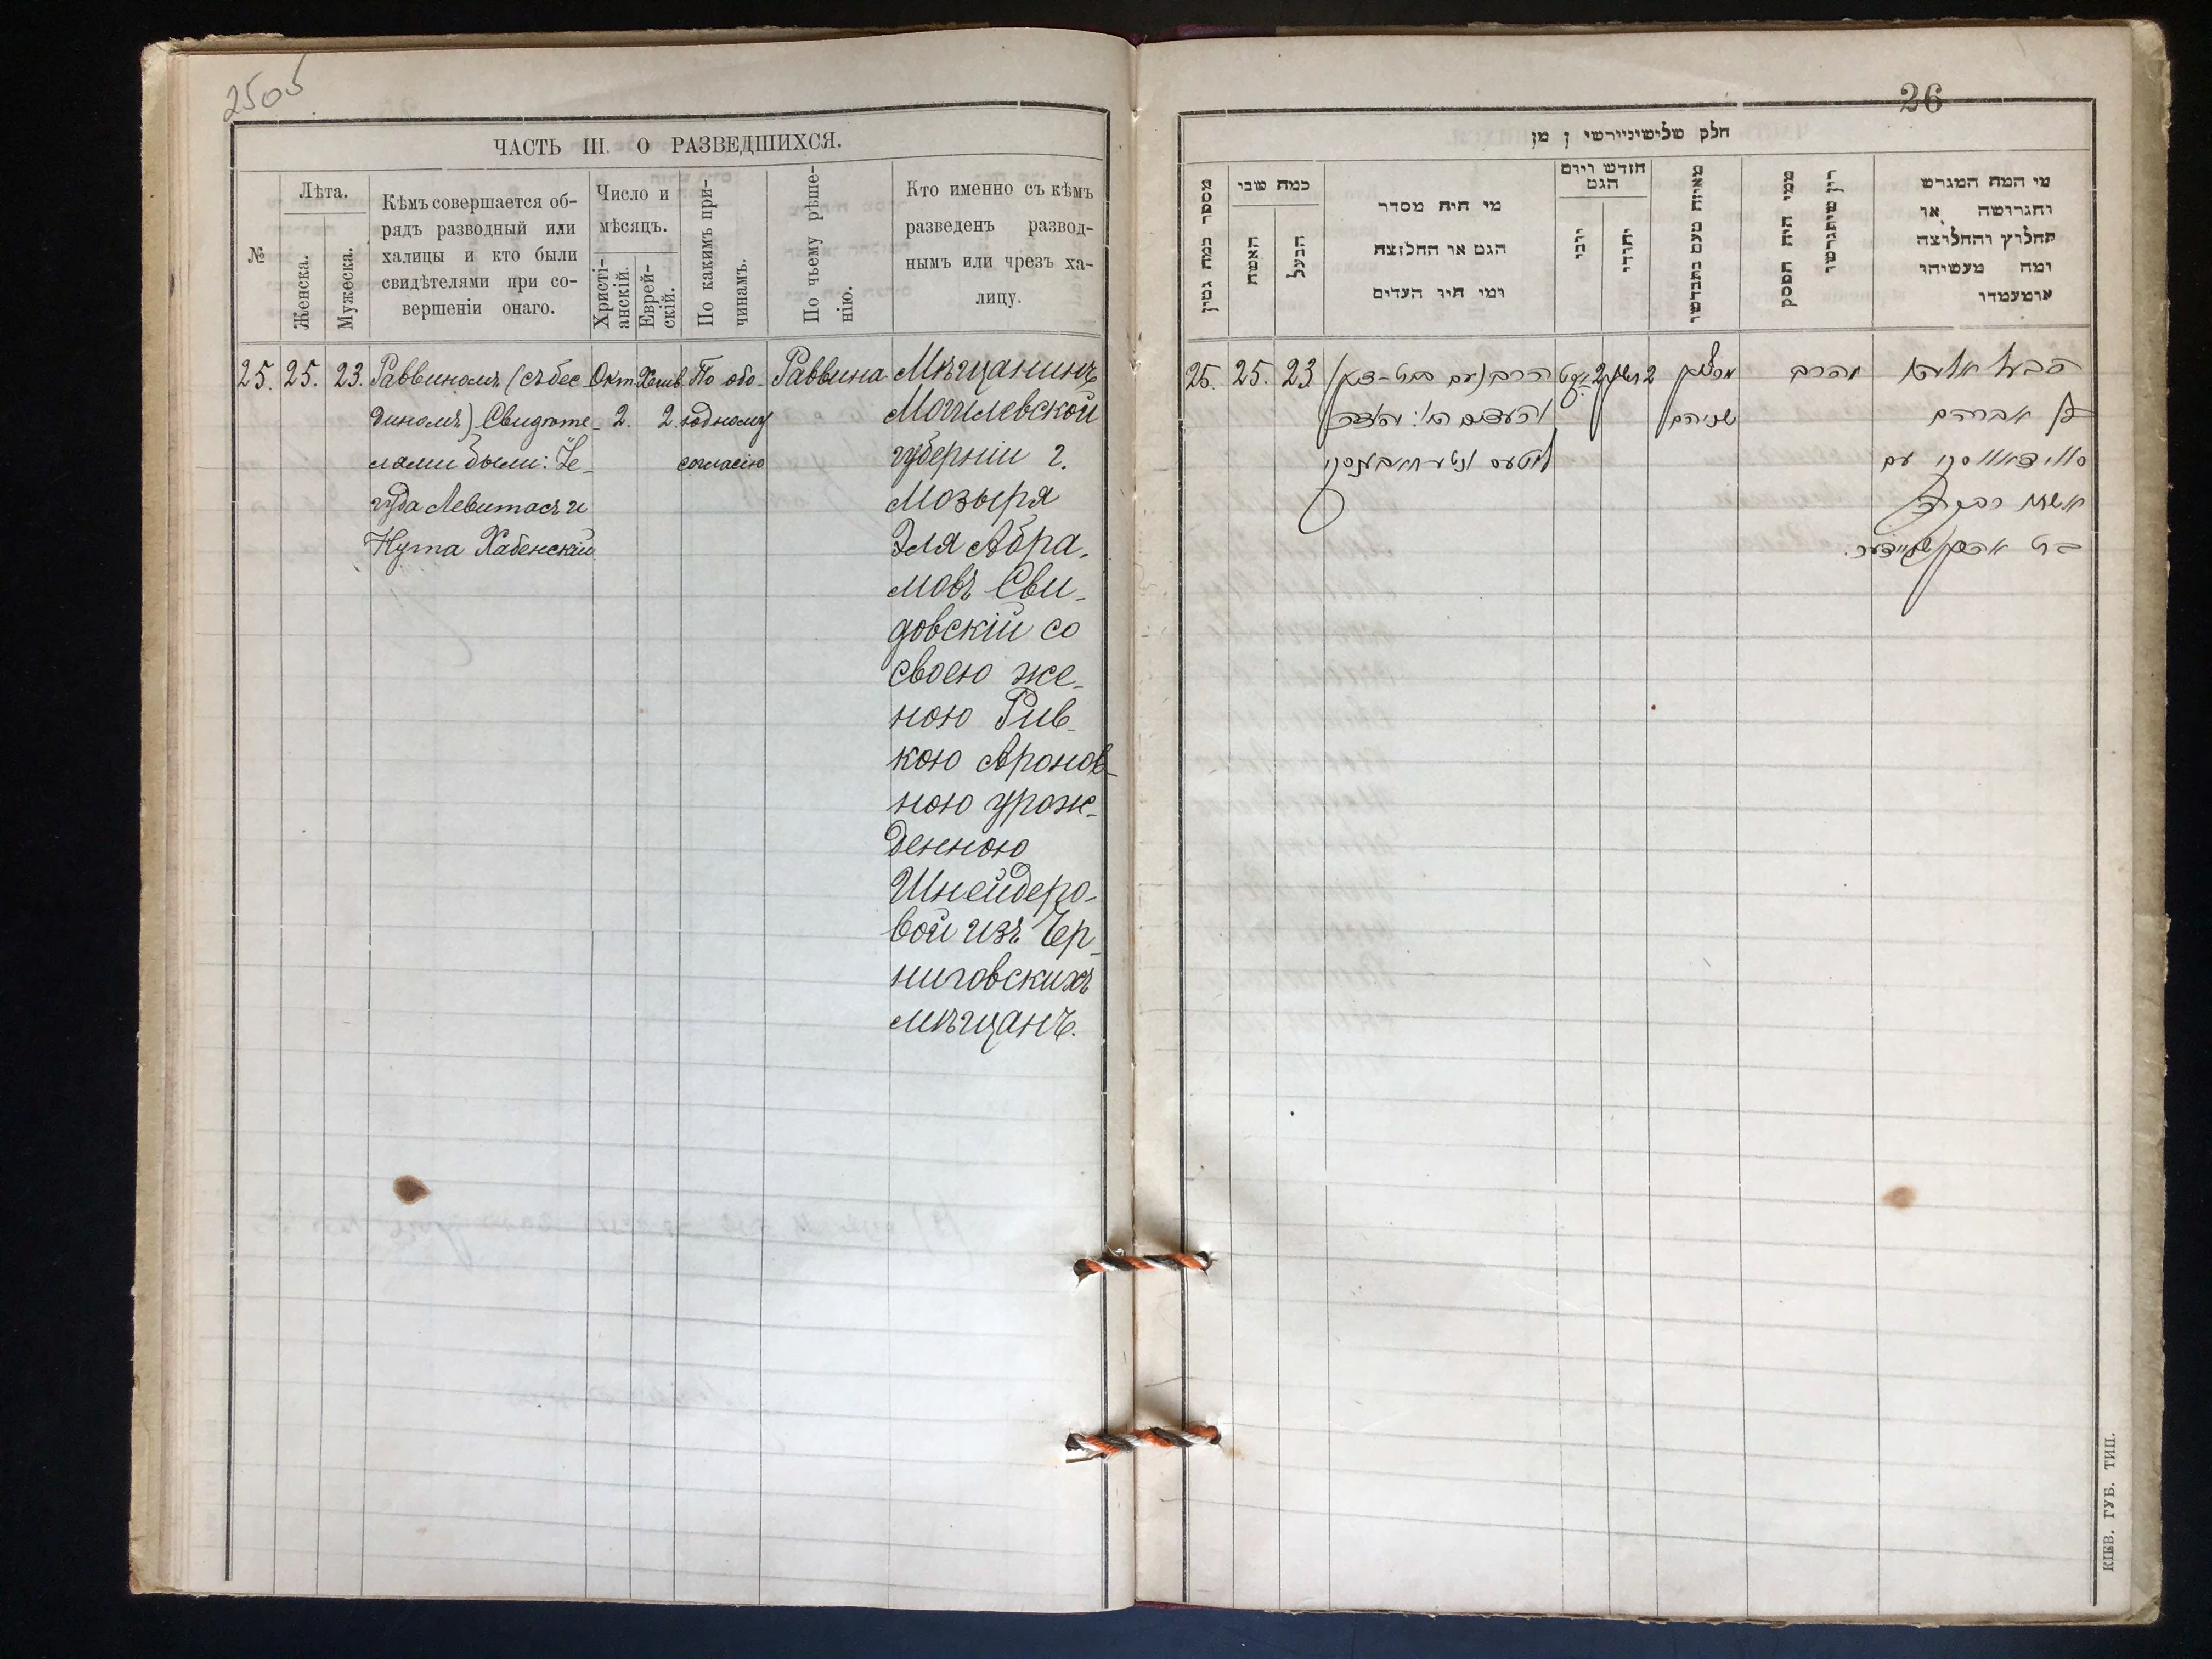 2505
ЧАСТЬ III. О РАЗВЕДШИХСЯ.
№
Лѣта.
Женска.
Мужеска.
Кѣмъ совершается об-
рядъ разводный или
халицы и кто были
свидѣтелями при со-
вершеніи онаго.
Число и
мѣсяцъ.
Христі-
анскій.
Еврей-
скій.
По какимъ при-
чинамъ.
По чьему рѣше-
нію.
Кто именно съ кѣмъ
разведенъ развод-
нымъ или чрезъ ха-
лицу.
25. 25. 23.
Раввиномъ (съ бес
диномъ) Свидѣте-
лями были: Іе-
гуда Левитасъ и
Нута Хабенскій
Окт.
2.
Хешв.
2.
По обо-
юдному
согласію
Раввина
Мѣщанинъ
Могилевской
губерніи г.
Мозыря
Эля Абра-
мовъ Сви-
довскій со
своею же-
ною Рив-
кою Аронов-
ною урож-
денною
Шнейдеро-
вой изъ Чер-
ниговскихъ
мѣщанъ.
26
חלק שלישיניירשי ן מן
מספר כמה גטין
כמה שני
האשה
הבעל
מי היה מסדר
הגט או החלוצה
ומי היו העדים
חודש ויום
הגט
יוני
יהודי
מאיזה טעם נתגרשו
ממי היה הפסק
דין שיתגרשו
מי המה המגרש
והגרושה או
החלוץ והחלוצה
ומה מעשיהו
אומעמדו
25. 25. 23
הרב (עם בית-דין)
2
2
מרצון
שניהם
מהרב
הבעל אליהו
בן אברהם
סווידאווסקי עם
אשתו רבקה
בת אהרן שניידער.
КІЕВ. ГУБ. ТИП.